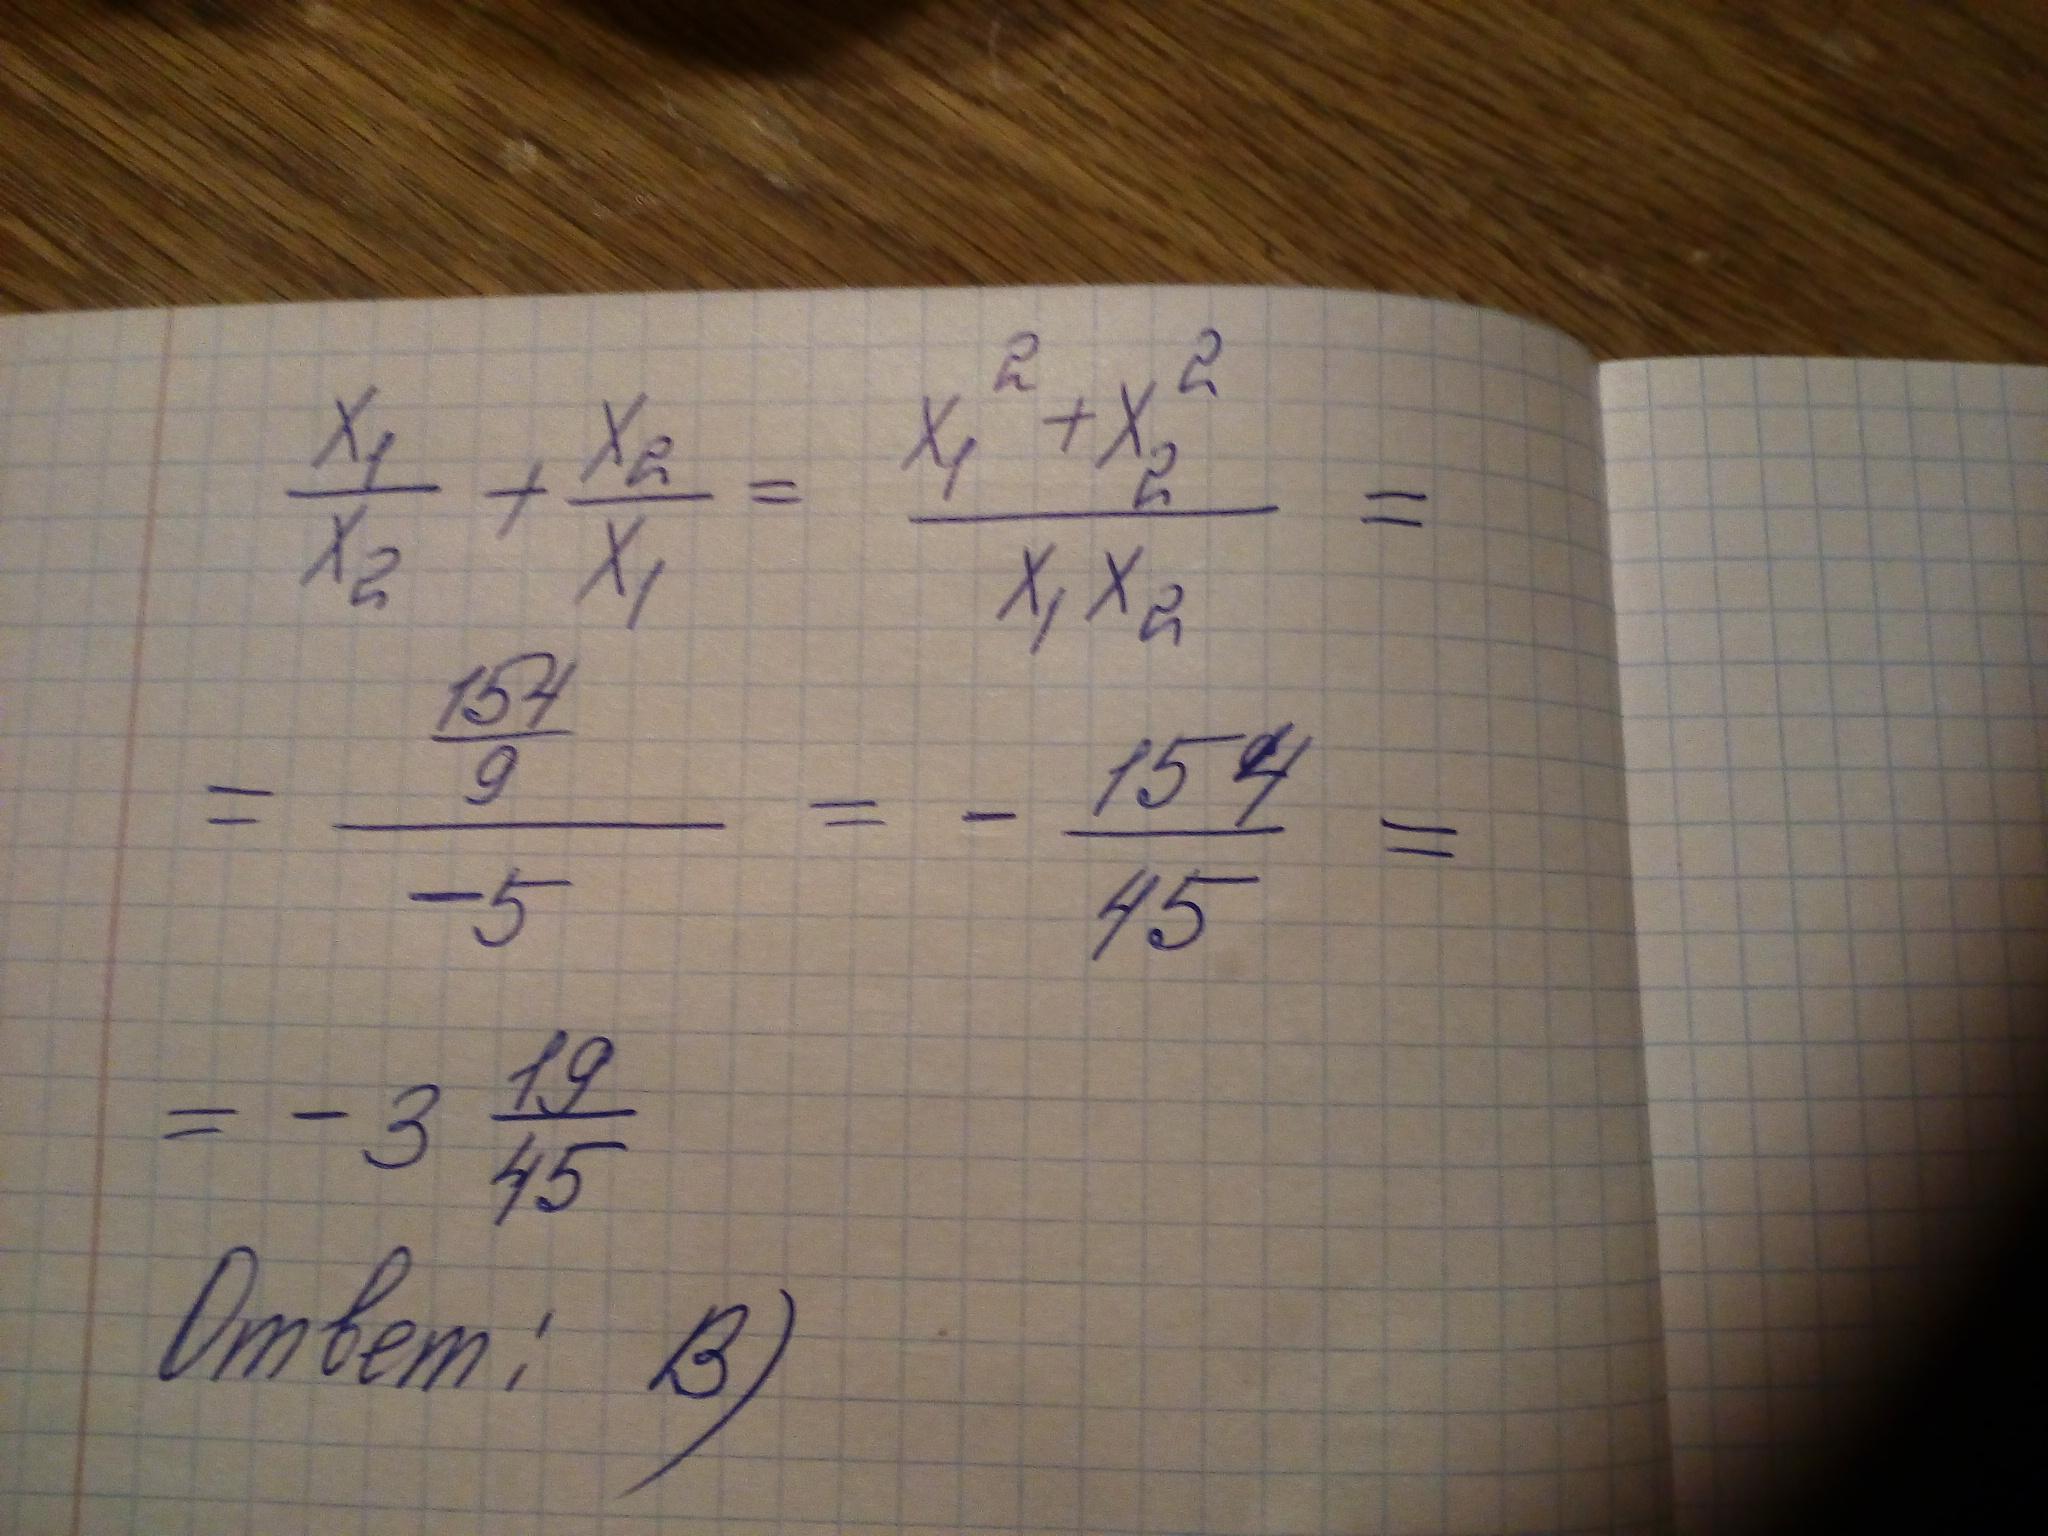 x₁/x₂ + x₂/x₁ = (x₁² + x₂²)/(x₁x₂) =
= (154/9)/(-5) = - 154/45 =
= - 3 19/45
Ответ: В)